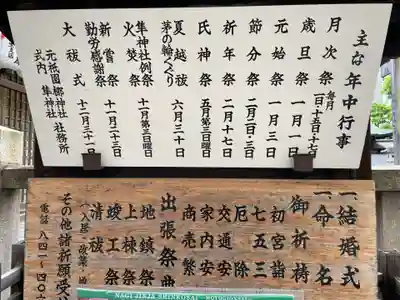 主な年中行事
月次祭 毎月一日・十五・十七
歳旦祭 一月一日
元始祭 一月三日
節分祭 二月二日・三日
祈年祭 二月十七日
氏神祭 五月第三日曜日
夏越祓 茅の輪くぐり 六月三十日
隼神社例祭 火焚祭 十一月第三日曜日
新嘗祭 勤労感謝祭 十一月二十三日
大祓式 十二月三十一日
元祇園梛神社 式内 隼神社 社務所
一、結婚式
一、命名
御祈祷
初宮詣
七五三
厄除
交通安
家内安
商売繁
出張祭典
地鎮祭
上棟祭
竣工祭
清祓
その他諸祈願受
電話 八四一-四〇
NAGI JINJA SHINKOSAI